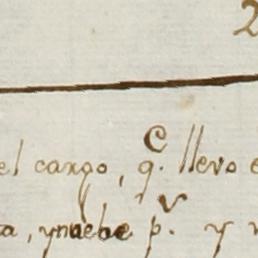 2
C
el cargo, q.e llevo e
V
ta, ynuebe p.s y v